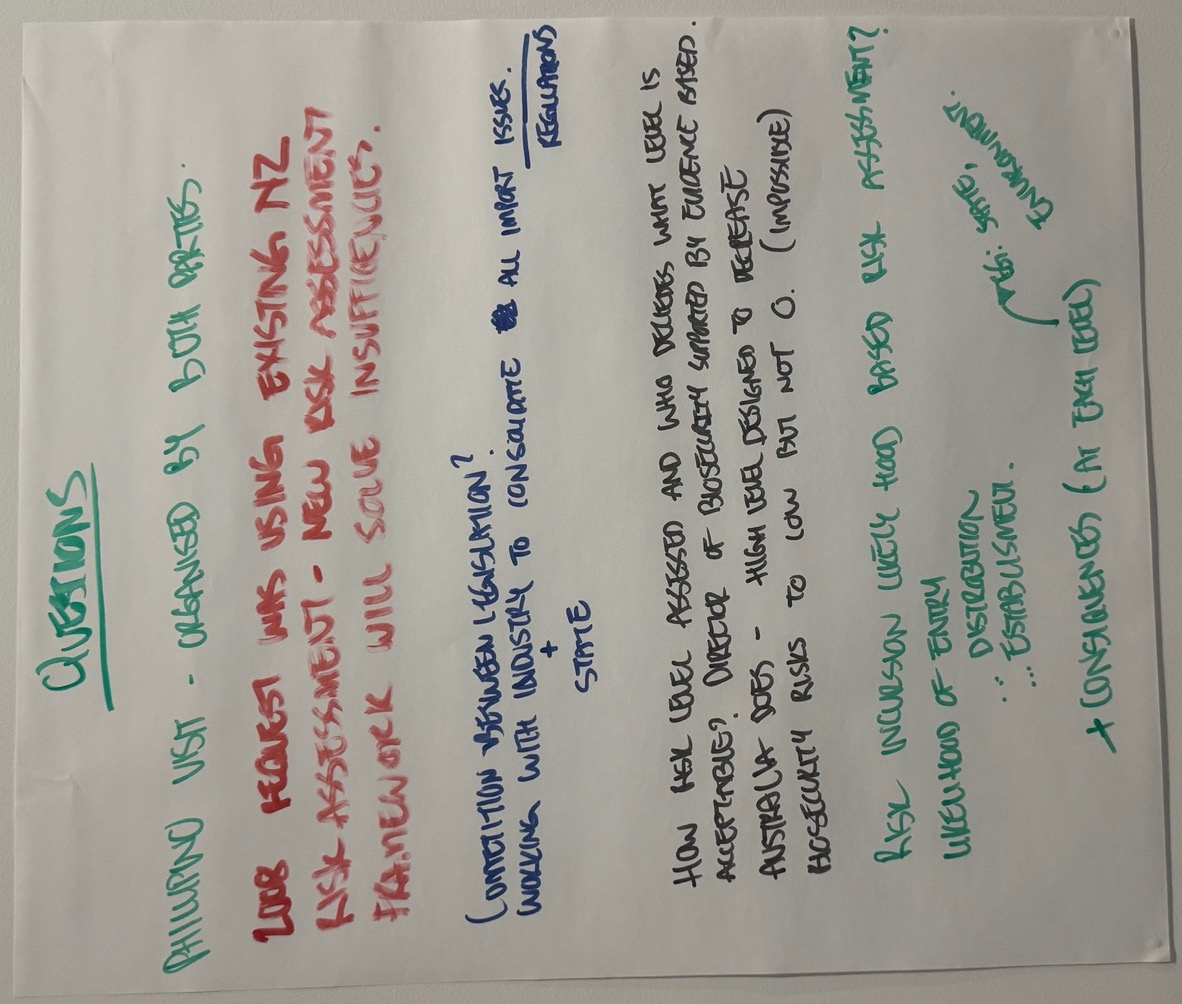 QUESTIONS
PHILLIPINO VISIT - ORGANISED BY BOTH PARTIES.
2008 REQUEST WAS USING EXISTING NZ
RISK ASSESSMENT - NEW RISK ASSESSMENT
FRAMEWORK WILL SOLVE INSUFFICIENCIES.
COMPETITION BETWEEN LEGISLATION?
WORKING WITH INDUSTRY TO CONSOLIDATE ALL IMPORT ISSUES.
+
STATE
REGULATIONS
HOW RISK LEVEL ASSESSED AND WHO DECIDES WHAT LEVEL IS
ACCEPTABLE? DIRECTOR OF BIOSECURITY SUPPORTED BY EVIDENCE BASED.
AUSTRALIA DOES - HIGH LEVEL DESIGNED TO DECREASE
BIOSECURITY RISKS TO LOW BUT NOT 0. (IMPOSSIBLE)
RISK INCURSION LIKELYHOOD BASED RISK ASSESSMENT?
LIKELIHOOD OF ENTRY
DISTRIBUTION
... ESTABLISMENT.
+ CONSEQUENCES (AT EACH LEVEL)
REGI. STATE,
ENVIRONMENT.